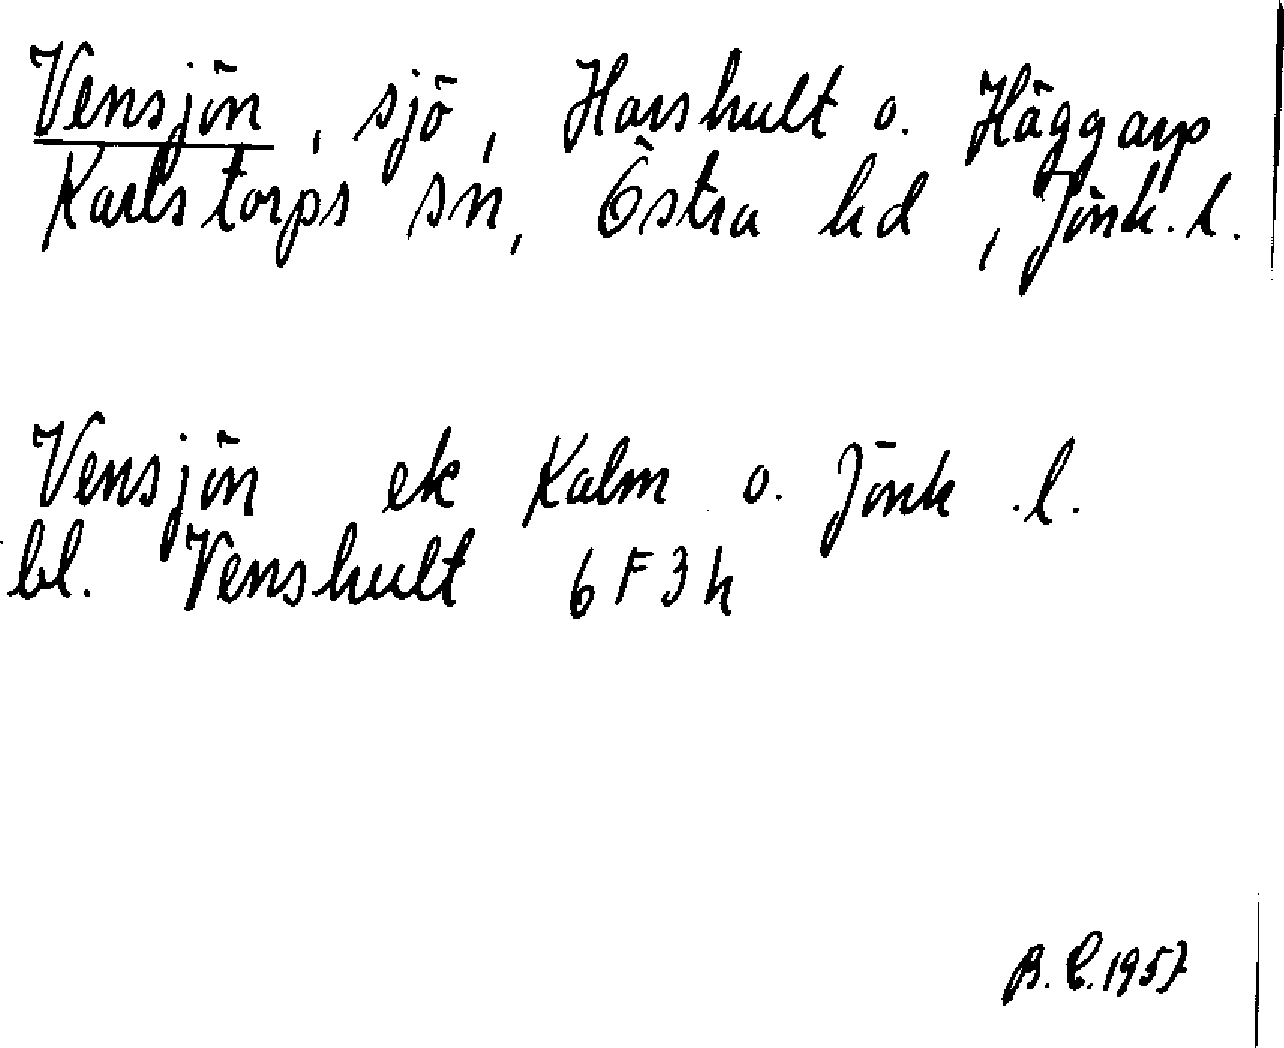 Vensjön, sjö, Harshult o. Häggarp
Karlstorps sn, Östra hd, Jönk. l.
Vensjön ek Kalm o. Jönk. l.
bl. Venshult 6F3h
B.C. 1957